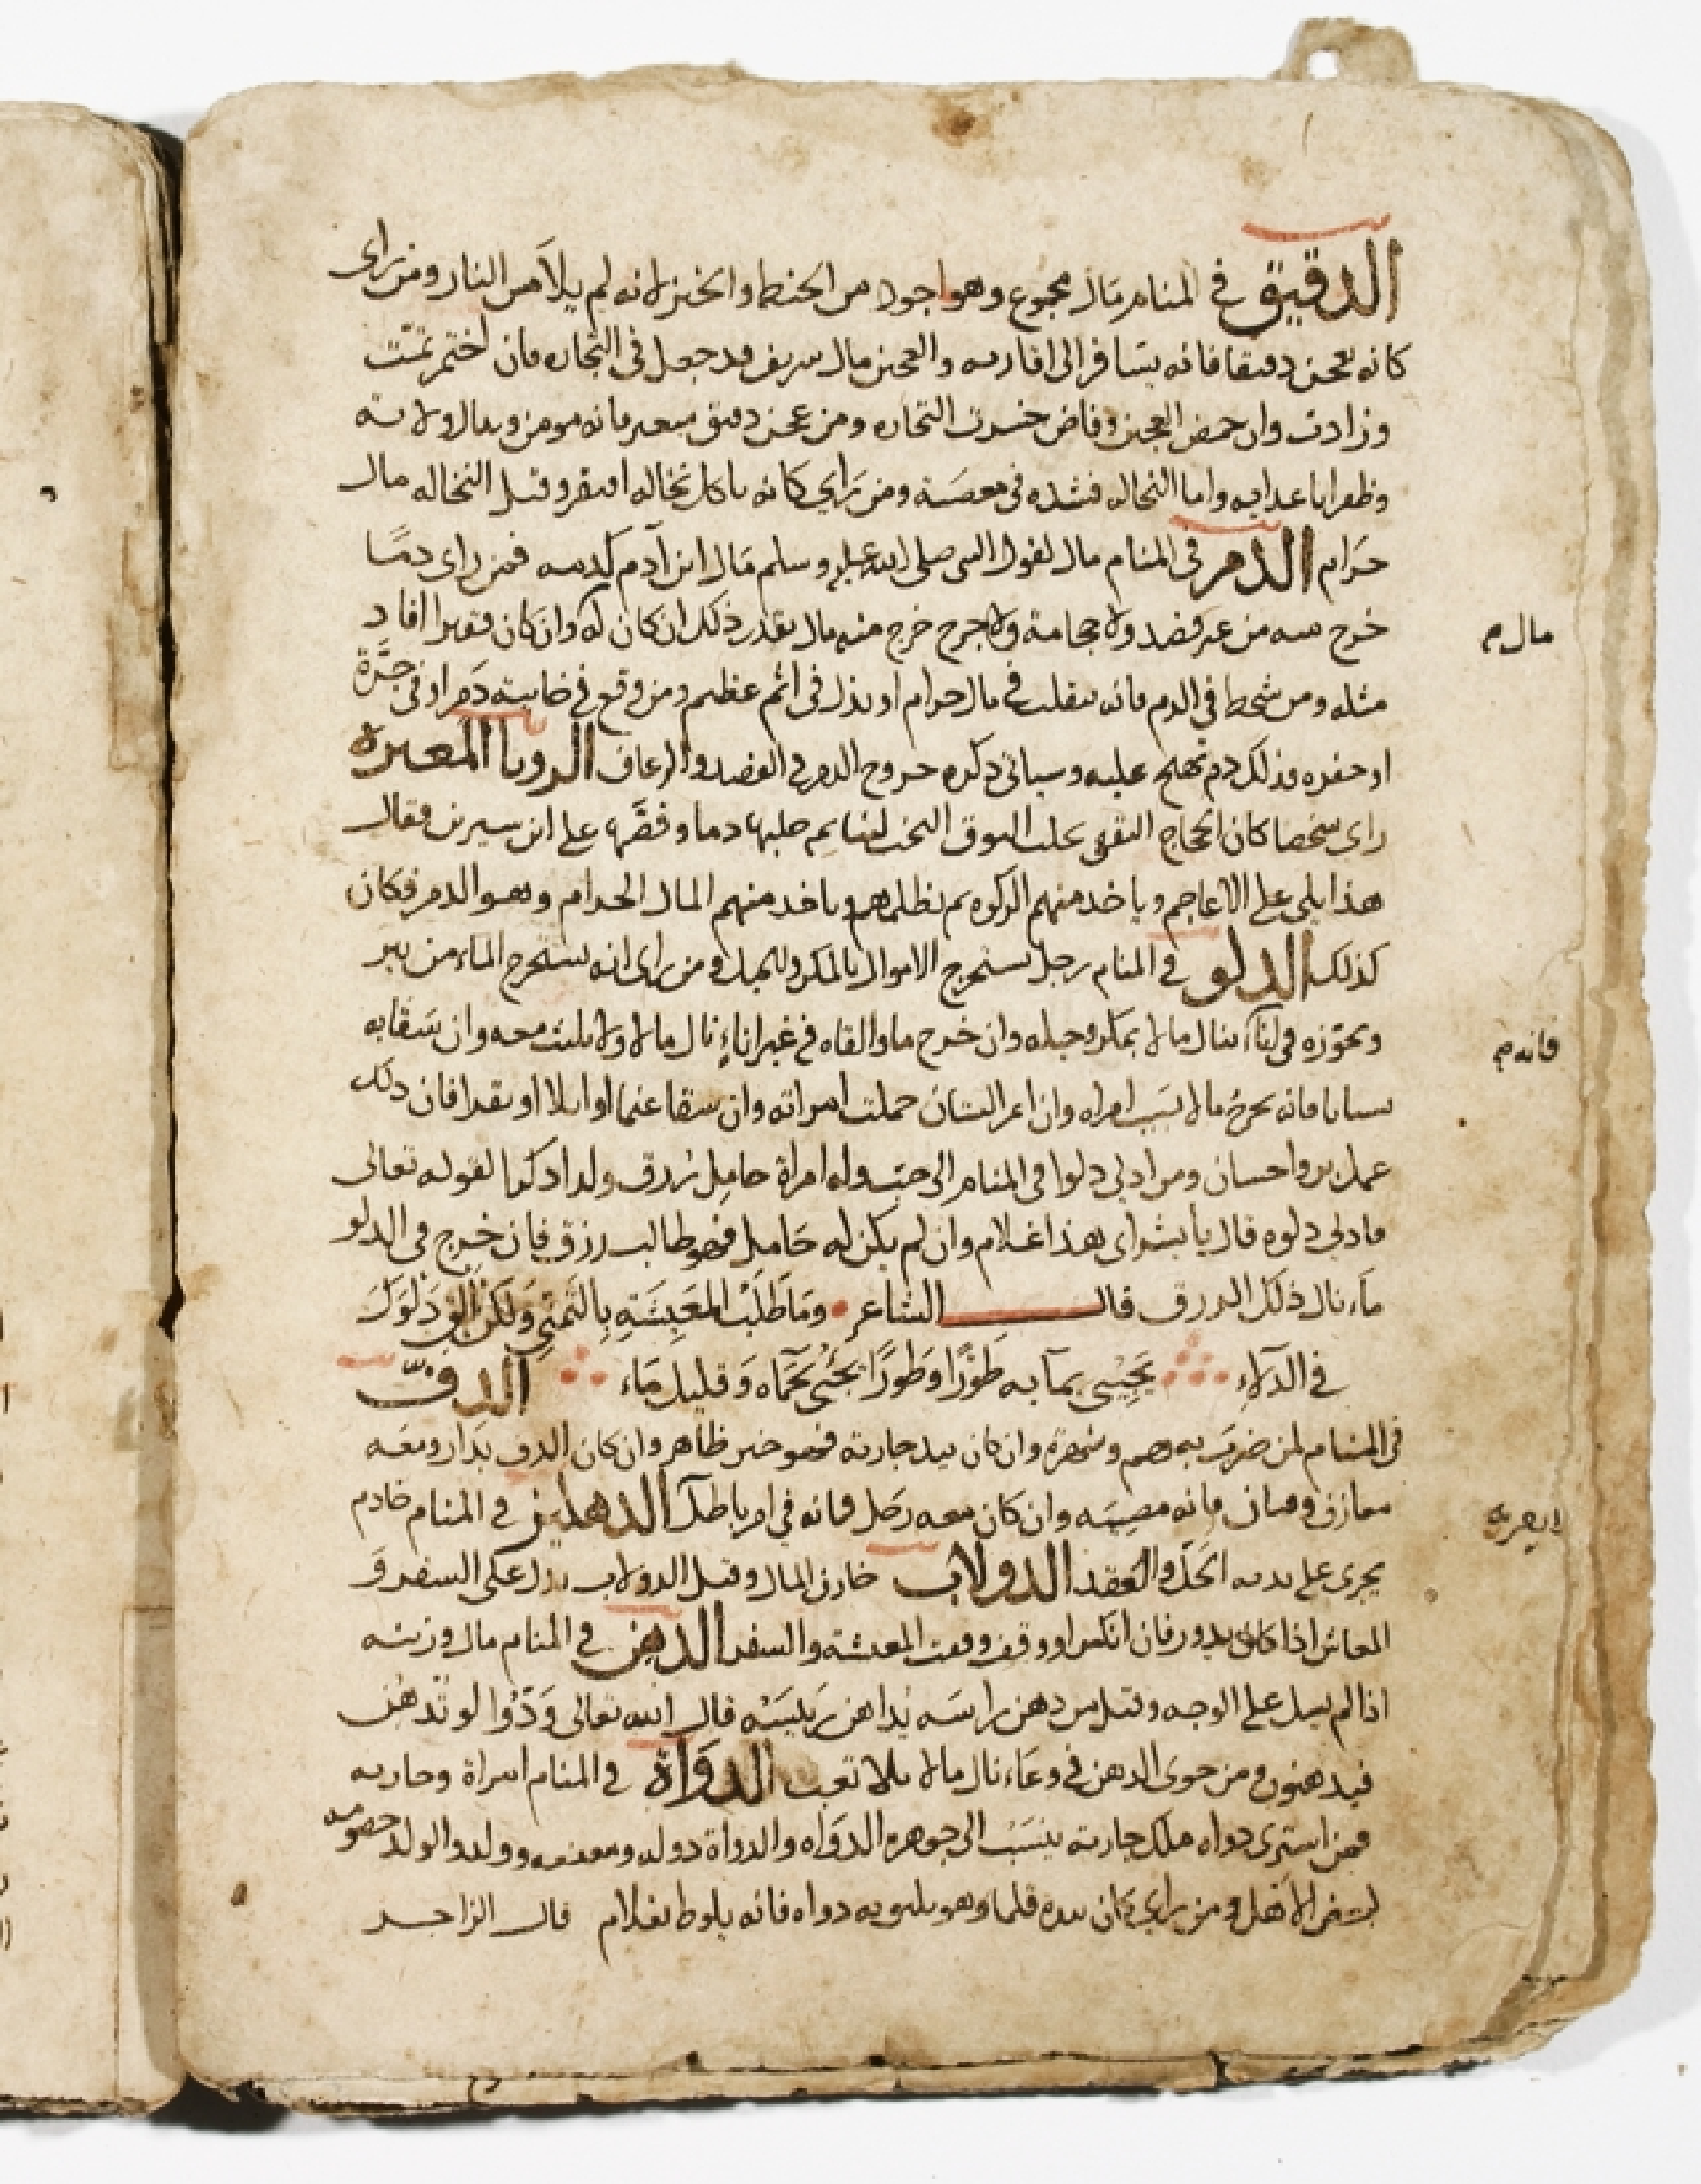 الدقيق في المنام مال مجموع وهو اجود من الحنطه والخبز لانه لم يلامس النار ومن راى
كانه يعجن دقيقا فانه يسافر الى اقاربه والعجين مال شريف قد جعل في التجاره فان اختمر تمت
وزادت وان حمض العجين وفاض خسرت التجاره ومن عجن دقيق شعير فانه مومن وينال ولاية
وظفرا باعدايه واما النخاله فشده في معيشة ومن راى كانه ياكل نخاله افتقر وقيل النخاله مال
حرام الدم في المنام مال لقول النبي صلى الله عليه وسلم مال ابن آدم كدمه فمن راى دمًا
خرج منه من غير فصد ولا حجامة ولا جرح خرج منه مال بقدر ذلك ان كان له وان كان فقيرا افاد
مال م
مثله ومن تشحط في الدم فانه يتقلب في مال حرام او يدل في اثم عظيم ومن وقع في خابية دم او في جرّة
او حفره فذلك دم تهيج عليه وسياتي ذكره خروج الدم في الفصد والرعاف الرويا المعبره
راى شخصا كان الحجاج الثقفي يحلب النوق البخت لبنا ثم حلبها دما وقصها على ابن سيرين فقال
هذا يلي على الاعاجم وياخذ منهم الزكوه ثم يظلمهم وياخذ منهم المال الحرام وهو الدم فكان
كذلك الدلو في المنام رجل يستخرج الاموال بالمكر والحيله ومن راى انه يستخرج الماء من بير
ويحوزه في اناء ينال مالا بمكر وحيله وان خرج ماء والقاه في غير اناء نال مالا ولا يلبث معه وان سقا به
فانه م
بستانا فانه يحوز مالا بسبب امراه وان اثمر البستان حملت امراته وان سقا غنما او ابلا او بقرا فان ذلك
عمل بر واحسان ومن ادلى دلوا في المنام الى جب وله امراة حامل رزق ولدا ذكرا لقوله تعالى
فادلى دلوه قال يا بشراى هذا غلام وان لم يكن له حامل فهو طالب رزق فان خرج في الدلو
ماء نال ذلك الرزق قال الشاعر وَمَا طَلَبُ المَعِيشَةِ بِالتَّمَنِّي وَلَكن القِ دَلْوَكَ
في الدلاءِ يَجِيْى بمآيه طَوْرًا وَطَورًا يَجْئى بحَمَاه وَقليل مَاء الدف
في المنام لمن ضرب به هم وشهرة وان كان بيد جارية فهو خبر ظاهر وان كان الدف بدار ومعه
معازف وقيان فانه مصيبه وان كان معه رجل فانه في امر باطل الدهليز في المنام خادم
يجرى على يديه الحل والعقد الدولاب خازن المال وقيل الدولاب يدل على السفر و
المعاش اذا كان يدور فان انكسر او وقف وقفت المعيشة والسفر الدهن في المنام مال وزينه
اذا لم يسل على الوجه وقيل من دهن راسه يُداهن رَييسَه قال الله تعالى وَدُّوا لو تُدهن
فيدهنون ومن حوى الدهن في وعاء نال مالا بلا تعب الدواة في المنام امراة وجاريه
فمن اشترى دواه ملك جارية ينسب الى جوهر الدواه والدواة دوله ومنفعه وولد والولد خصومه
لبعض الاهل ومن راى كان بيده قلما وهو يليق به دواه فانه يلوط بغلام قال الراجز